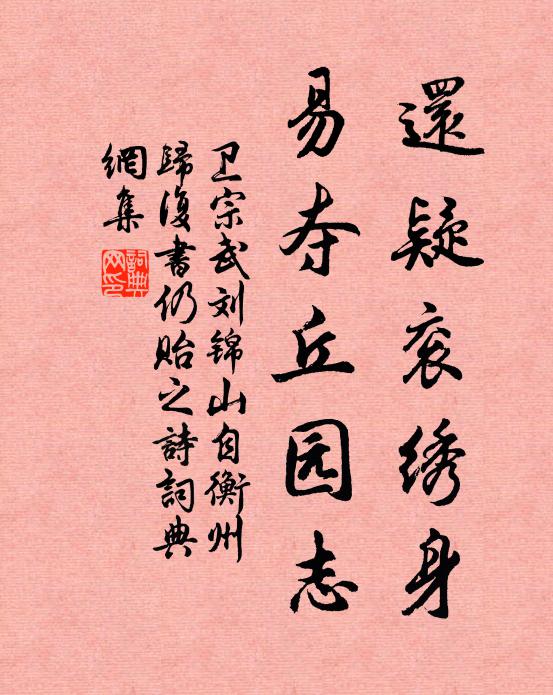 還疑衮绣身
易夺丘园志
卫宗武刘锦山自衡州
歸復書仍贻之詩詞典
網集
詞典网印